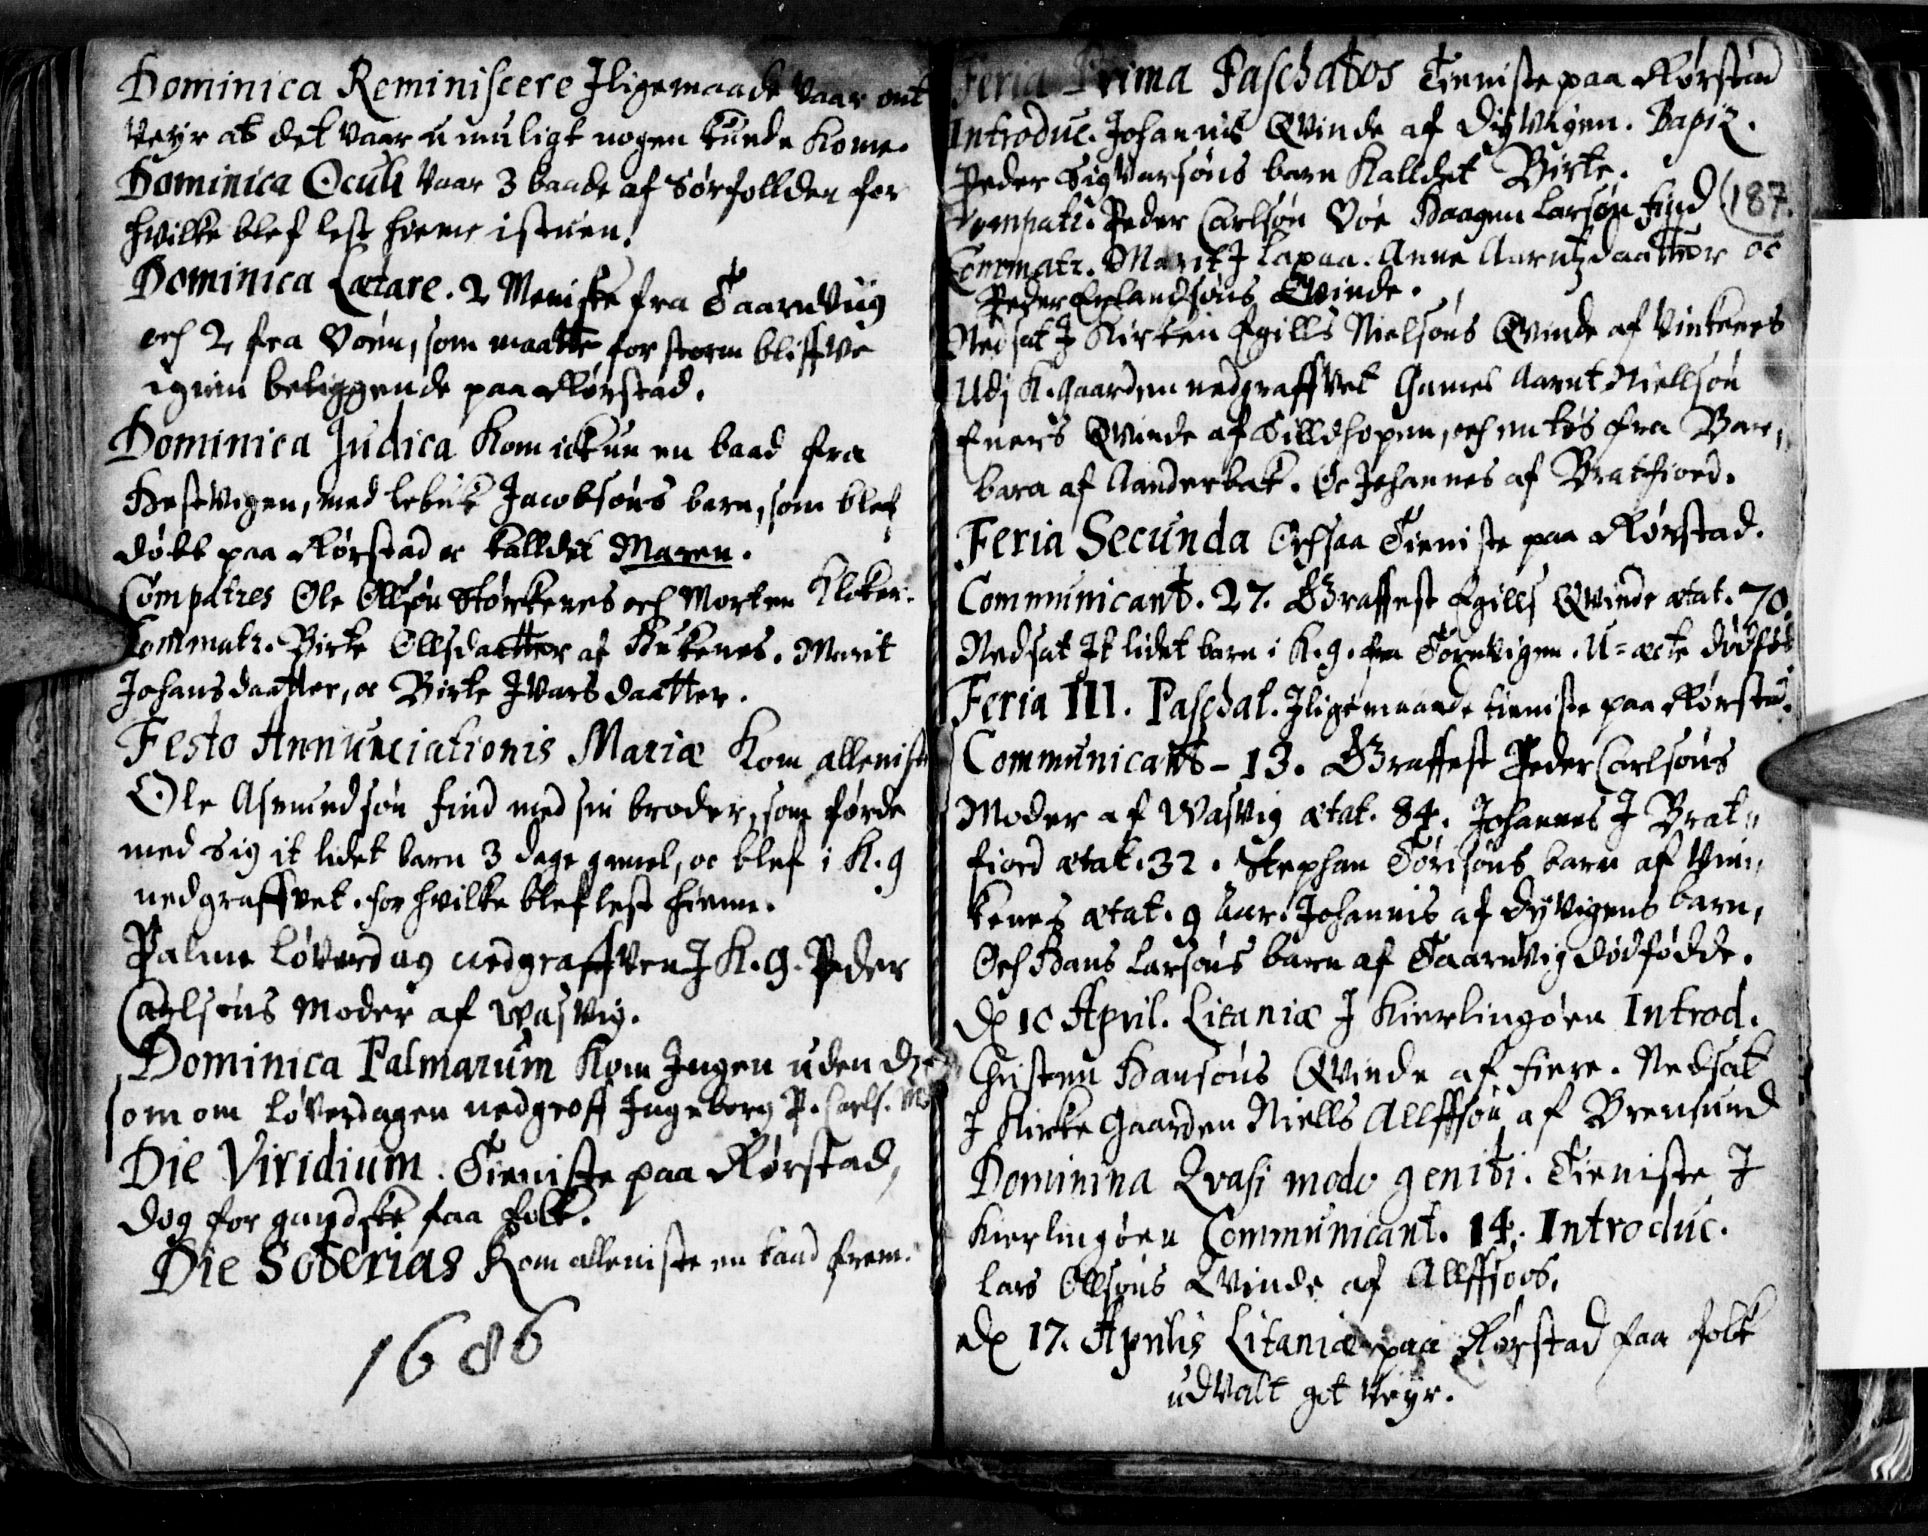 Dominica Reminiscere Iligemaade vaar ont
Veyr at det vaar u muligt nogen kunde kome.
Dominica Oculi vaar 3 baade af Sørfollden for
hvilke blef lest hieme i stuen.
Dominica Lætare. 2 Meniske fra Taarnviig
och 2 fra Vøen, som maatte for storm bliffve
igien beliggende paa Rørstad.
Dominica Judica kom ickun en baad fra
Hestvigen, med Jacobsøns barn, som blef
døbt paa Rørstad oc kalldet Maren.
Compatres Ole Ollsøn Størckenes och Morten Klocker.
Commatr. Birte Ollsdaatter af . Marit
Johansdaatter, oc Birte Ivarsdaatter.
Festo Annunciationis Mariæ kom alleniste
Ole Asmundsøn find med sin broder, som førde
med sig it lidet barn 3 dage gamel, oc blef i K. g
nedgraffvet. for hvilke blef lest hieme.
Palme Løverdag nedgraffven I K. g. Peder
Carlsøns Moder af Wasvig.
Dominica Palmarum kom Ingen uden de
som om Løverdagen nedgroff Ingeborg P. Carls. Mo
Die Viridium. Tieniste paa Rørstad,
dog for gandske faa folk.
Die Soterias kom alleniste en baad frem.
1686
Feria Prima Paschatos Tieniste paa Rørstad
Introduc. Johannis Qvinde af Dyvigen. Bapiz.
Peder Sigvarsøns barn kalldet Birte.
187.
Compatr. Peder Carlsøn Vøe Haagen Larsøn find
Commatr. Marit I Lapaa. Anne Aarntzdaatter oc
Peder Erlandsøns Qvinde.
Nedsat I Kirken Egills Nielsøns Qvinde af Vinkenes
Udj K. gaarden nedgraffvet Games Aarnt Niellsøn
Eners Qvinde af Tilldhopen, och en tøs fra Bar,,
bara af Aanderbak. Oc Johannes af Bratfiord.
Feria Secunda Ochsaa Tieniste paa Rørstad.
Communicant. 27. Graffest Egills Qvinde ætat. 70.
Nedsat It lidet barn i K. g. fra Tørnvigen. U=æcte dødfød
Feria III. Paschat. Iligemaade tieniste paa Rørstad.
Communicants - 13. Graffest Peder Carlsøns
Moder af Wasvig ætat. 84. Johannes I Brat,,
fiord ætat. 32. Stephan Tørisøns barn af Vin,,
kenes ætat. 9 aar. Johannis af Dyvigens barn,
Och Hans Larsøns barn af Taarnvig dødfødde.
D. 10 April. Litaniæ I Kierlingøen Introd.
Christen Hansøns Qvinde af Fiere. Nedsat
I Kircke Gaarden Niells Allffsøn af Brensund
Dominina Qvasi modo geniti. Tieniste I
Kierlingøen Communicant. 14. Introduc.
Lars Ollsøns Qvinde af Allffsoos.
D. 17. Aprilis Litaniæ paa Rørstad faa folk
udvalt got veyr.